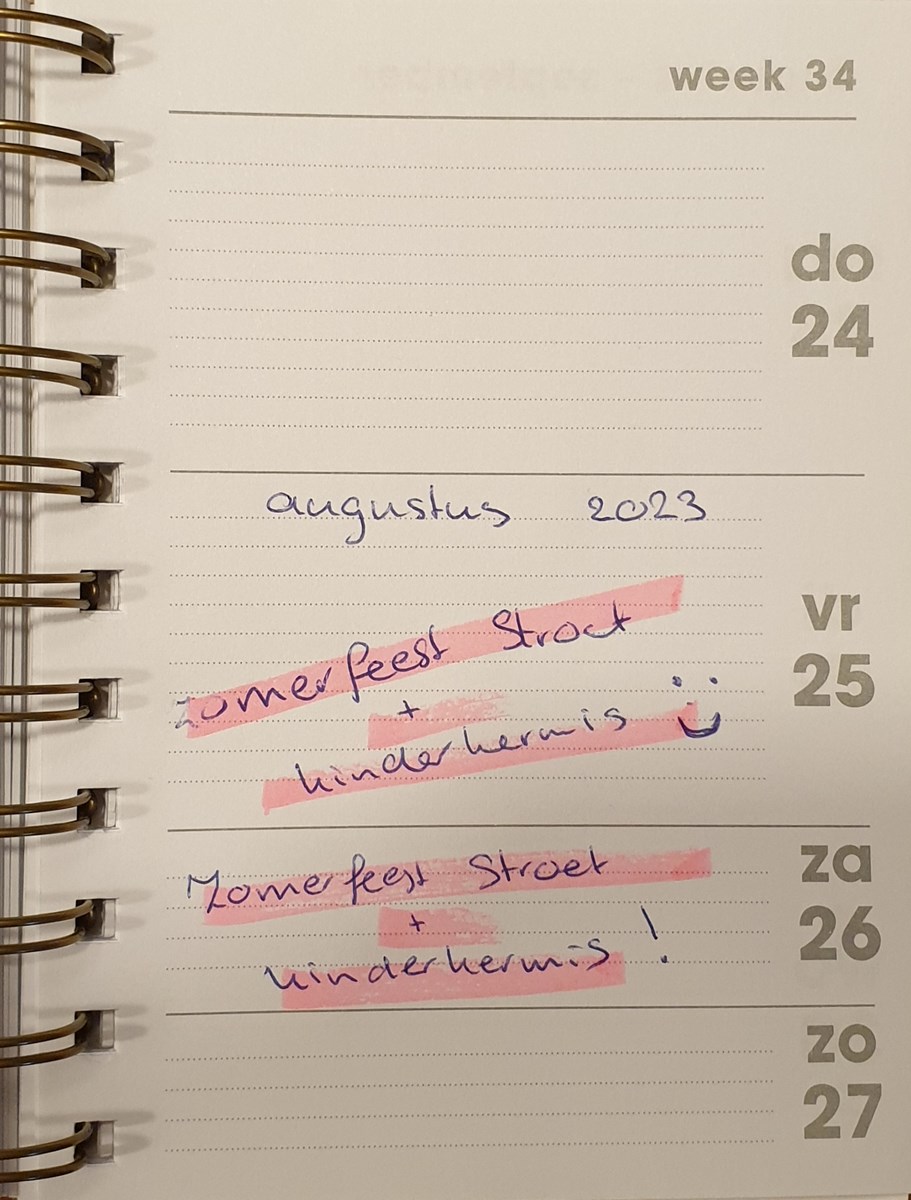 week 34
do
24
augustus 2023
zomerfeest Stroet
+
kinderkermis
vr
25
Zomerfeest Stroet
+
kinderkermis !
za
26
zo
27